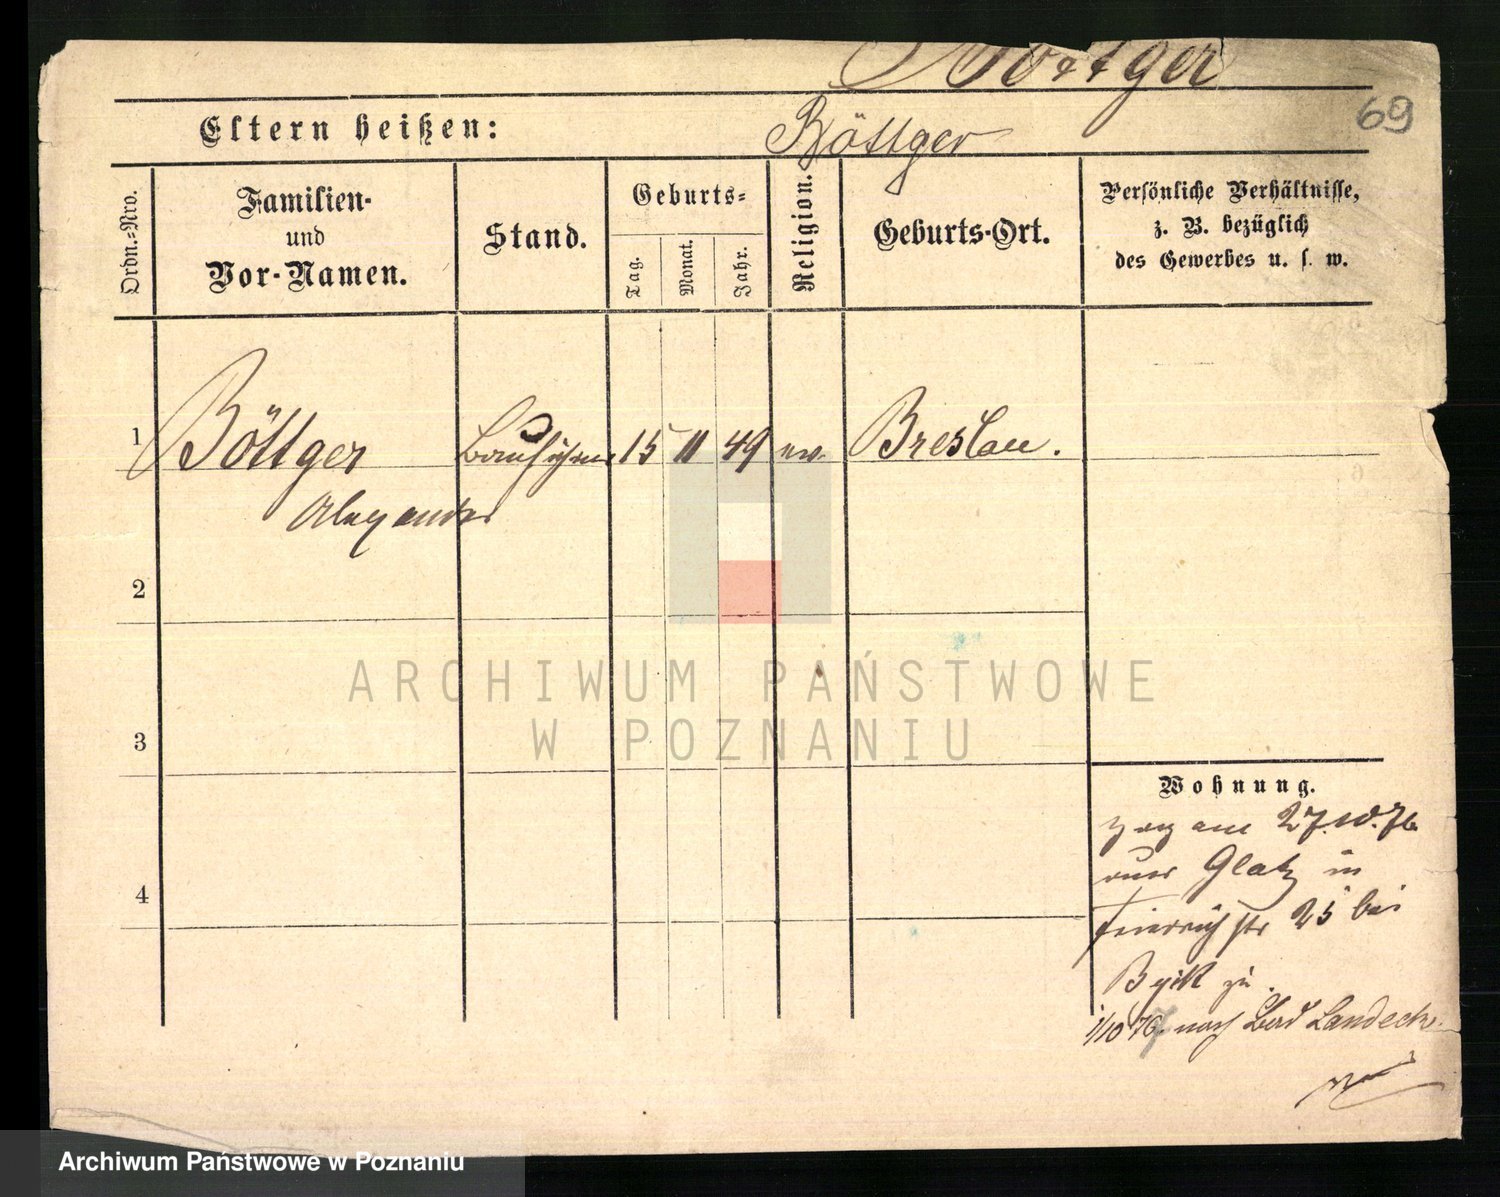 Böttger
69
Eltern heißen:
Böttger
Ordn.-Nro.
Familien-
und
Vor-Namen.
Stand.
Geburts-
Tag.
Monat.
Jahr.
Religion.
Geburts-Ort.
Persönliche Verhältnisse,
z. B. bezüglich
des Gewerbes u. s. w.
1 Böttger Bauführer 15 11 49 ev. Breslau.
Alexander
2
3
4
ARCHIWUM PAŃSTWOWE
W POZNANIU
Wohnung.
zog am 27.10.76
aus Glatz in
Friedrichstr 25 bei
zu.
1/10 76 nach Bad Landeck.
Archiwum Państwowe w Poznaniu